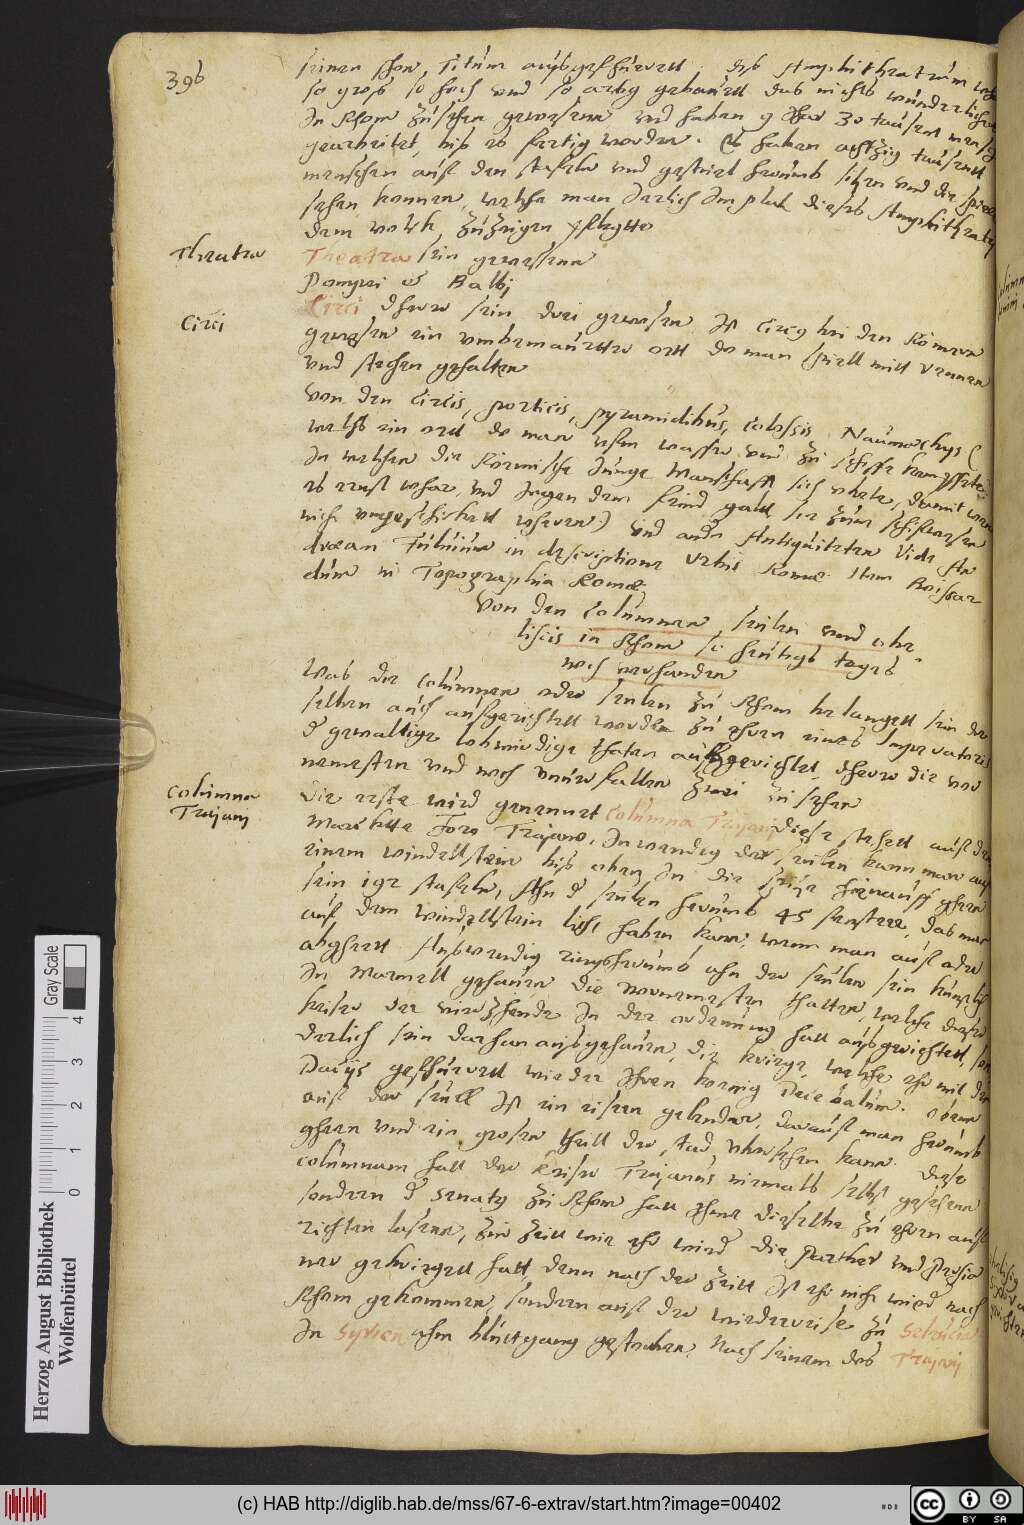 396
seinen sohn Titum außgefhüerett. diß Amphitheatrum
so groß so hoch und so artig gebauett das nichts wunderlicher
In Rhom zusehen gewesenn und haben 9 Jhar 30 tausent mensch
gearbeitet, biß es fertig worden. Es haben achtzig tausentt
menschen auf den staffeln und gestuel herumb sitzen und die spiele
sehen konnen, welche man Jerlich Im platz dieses Amphitheatrj
dem volck zuzeigen pflegtte
Theatra
Theatra sein gewesenn
Pompei et Balbj
Circi
Circi deren sein drei gewesen Ist Circy bei den Römern
gewesen ein umbemauertter ortt do man spiell mitt rennen
und stechen gehalten
Von den Circis, porticis, pyramidibus, Colossis Naumachijs (
welchs ein ortt do man ufm wasser und zu schiffe kempffete
In welchen die Römische Junge Manschafft sich ubete, damit wen
es ernst whar, und Jegen dem feind galtt sie zum schifwesen
nich ungeschicktt wheren) und andr Antiquiteten Vide An
dream Fulvium in descriptione Urbis Romae Item Boissar
dum in Topographia Romae
Von den Columnen, seulen und obe
liscis in Rhom so heutigs tages
noch vorhanden
Was die Columnen oder seulen zu Rhom belangett sein die
selben auch aufgerichtett worden zu ehren eines Imperatoris
d gewaltige lobwirdige thaten außgerichtet, dheren die vor
nemesten und noch unuorfallen zwei zu sehen
Columna
Trajanj
Die erste wird genennet Columna Trajanj diese stehett auf dem
Marckte Foro Trajano, Inwendig der seulen kann man auf
einem windellstein biß oben In die spitze hinauff ghen
sein 192 staffeln, Ahn d seulen herumb 45 fenster, das man
auf dem windellstein licht haben kann, wenn man auf oder
abghett Außwendig ringsherumb ahn der seulen sein künstlich
In Marmell gehauen die vornemesten thatten, welche dieser
keiser der vierzehende In der ordenung hatt außgerichtett, son
derlich sein daran außgehauen, die kriege, welche ehr mit den
Dacijs gefhürett wieder Ihren koenig Decebalum. Oben
auf der seull Ist ein eisern gelender, darauf man herumb
ghen und ein grosen theill der stad ubersehen kann. Diese
columnam hatt der keiser Trajanus niemals selbst gesehenn
sondern d Senatus zu Rhom hatt Ihme dieselbe zu ehren auff
richten lasenn, zur zeitt wie ehr wied die Parther und Persia
ner gekrieget hatt, denn nach der zeitt Ist ehr nich wied nach
Rhom gekommen, sondern auf der wiederreise zu Seleucia
In Syrien ahm blutgang gestorben. Nach seinem des Trajanj
Gray Scale
0 1 2 3 4
Herzog August Bibliothek
Wolfenbüttel
(c) HAB http://diglib.hab.de/mss/67-6-extrav/start.htm?image=00402
cc BY SA